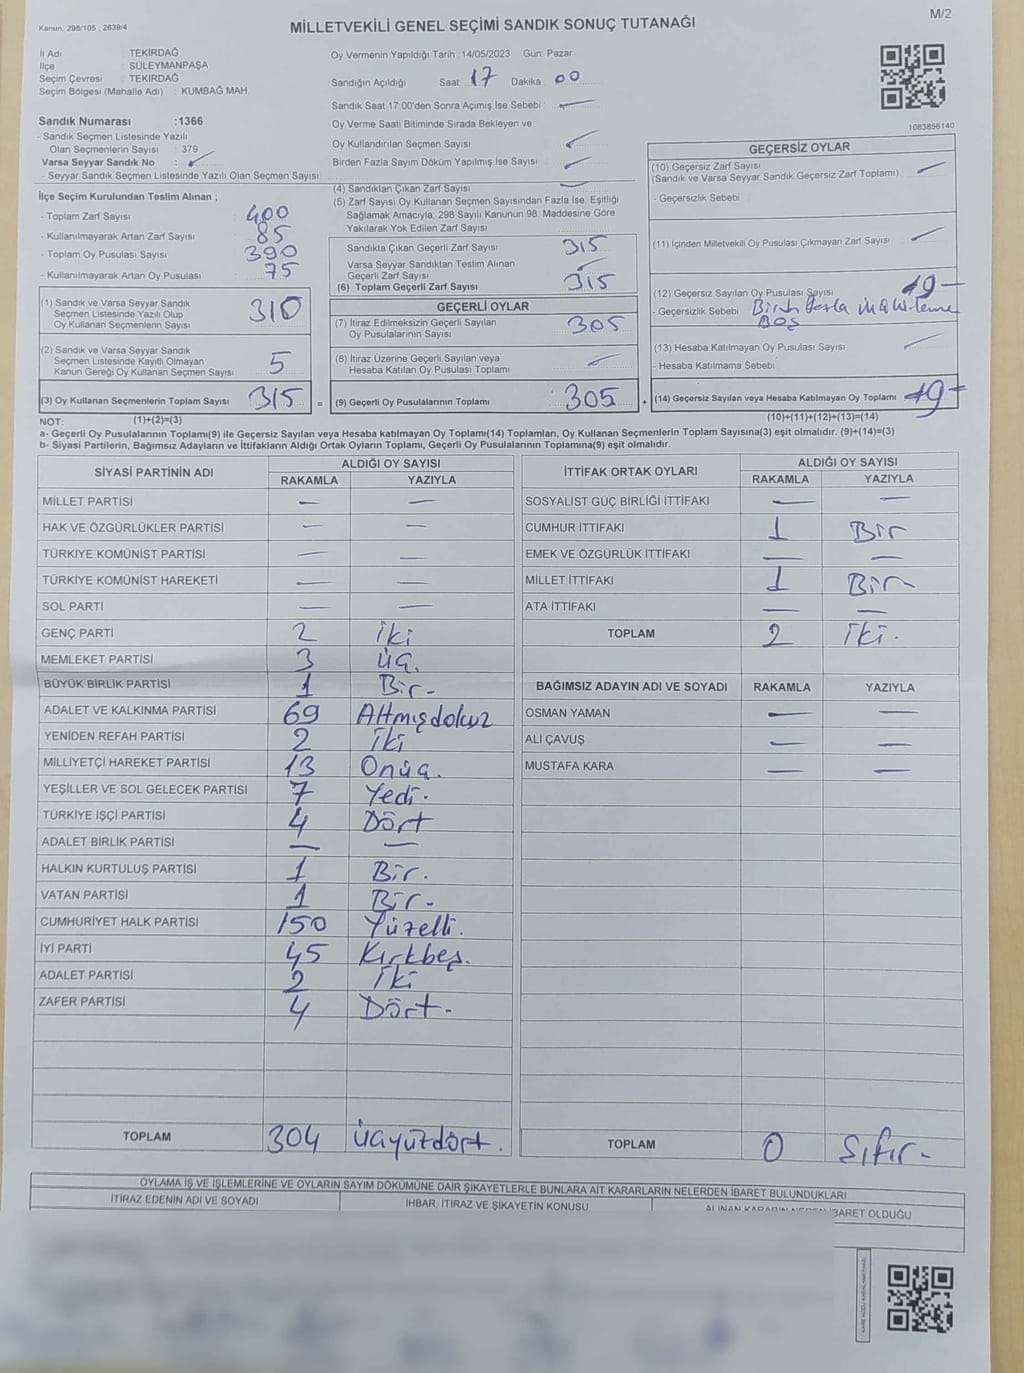 Kanun: 298/105 ; 2839/4
MİLLETVEKİLİ GENEL SEÇİMİ SANDIK SONUÇ TUTANAĞI
M/2
İl Adı : TEKİRDAĞ
İlçe : SÜLEYMANPAŞA
Seçim Çevresi : TEKİRDAĞ
Seçim Bölgesi (Mahalle Adı) : KUMBAĞ MAH.
Sandık Numarası :1366
- Sandık Seçmen Listesinde Yazılı
Olan Seçmenlerin Sayısı : 379
Varsa Seyyar Sandık No :
- Seyyar Sandık Seçmen Listesinde Yazılı Olan Seçmen Sayısı :
Oy Vermenin Yapıldığı Tarih : 14/05/2023 Gün: Pazar
Sandığın Açıldığı Saat: 17 Dakika : 00
Sandık Saat 17:00'den Sonra Açımış İse Sebebi : —
Oy Verme Saati Bitiminde Sırada Bekleyen ve
Oy Kullandırılan Seçmen Sayısı :
Birden Fazla Sayım Döküm Yapılmış İse Sayısı :
1083856140
İlçe Seçim Kurulundan Teslim Alınan ;
- Toplam Zarf Sayısı : 400
- Kullanılmayarak Artan Zarf Sayısı : 85
- Toplam Oy Pusulası Sayısı : 390
- Kullanılmayarak Artan Oy Pusulası : 75
(1) Sandık ve Varsa Seyyar Sandık
Seçmen Listesinde Yazılı Olup
Oy Kullanan Seçmenlerin Sayısı : 310
(2) Sandık ve Varsa Seyyar Sandık
Seçmen Listesinde Kayıtlı Olmayan
Kanun Gereği Oy Kullanan Seçmen Sayısı : 5
(3) Oy Kullanan Seçmenlerin Toplam Sayısı : 315
(4) Sandıktan Çıkan Zarf Sayısı : —
(5) Zarf Sayısı Oy Kullanan Seçmen Sayısından Fazla İse, Eşitliği
Sağlamak Amacıyla; 298 Sayılı Kanunun 98. Maddesine Göre
Yakılarak Yok Edilen Zarf Sayısı :
Sandıkta Çıkan Geçerli Zarf Sayısı : 315
Varsa Seyyar Sandıktan Teslim Alınan
Geçerli Zarf Sayısı :
(6) Toplam Geçerli Zarf Sayısı : 315
GEÇERLİ OYLAR
(7) İtiraz Edilmeksizin Geçerli Sayılan
Oy Pusulalarının Sayısı : 305
(8) İtiraz Üzerine Geçerli Sayılan veya
Hesaba Katılan Oy Pusulası Toplamı :
= (9) Geçerli Oy Pusulalarının Toplamı : 305 +
GEÇERSİZ OYLAR
(10) Geçersiz Zarf Sayısı
(Sandık ve Varsa Seyyar Sandık Geçersiz Zarf Toplamı) : —
- Geçersizlik Sebebi :
(11) İçinden Milletvekili Oy Pusulası Çıkmayan Zarf Sayısı : —
(12) Geçersiz Sayılan Oy Pusulası Sayısı :
- Geçersizlik Sebebi :
Boş
(13) Hesaba Katılmayan Oy Pusulası Sayısı : —
- Hesaba Katılmama Sebebi :
(14) Geçersiz Sayılan veya Hesaba Katılmayan Oy Toplamı :
NOT: (1)+(2)=(3)
(10)+(11)+(12)+(13)=(14)
a- Geçerli Oy Pusulalarının Toplamı(9) ile Geçersiz Sayılan veya Hesaba katılmayan Oy Toplamı(14) Toplamları, Oy Kullanan Seçmenlerin Toplam Sayısına(3) eşit olmalıdır. (9)+(14)=(3)
b- Siyasi Partilerin, Bağımsız Adayların ve İttifakların Aldığı Ortak Oyların Toplamı, Geçerli Oy Pusulalarının Toplamına(9) eşit olmalıdır.
SİYASİ PARTİNİN ADI ALDIĞI OY SAYISI
RAKAMLA YAZIYLA
MİLLET PARTİSİ — —
HAK VE ÖZGÜRLÜKLER PARTİSİ — —
TÜRKİYE KOMÜNİST PARTİSİ — —
TÜRKİYE KOMÜNİST HAREKETİ — —
SOL PARTİ — —
GENÇ PARTİ 2 İki
MEMLEKET PARTİSİ 3 Üç.
BÜYÜK BİRLİK PARTİSİ 1 Bir-
ADALET VE KALKINMA PARTİSİ 69 Altmışdokuz
YENİDEN REFAH PARTİSİ 2 İki
MİLLİYETÇİ HAREKET PARTİSİ 13 Onüç.
YEŞİLLER VE SOL GELECEK PARTİSİ 7 Yedi.
TÜRKİYE İŞÇİ PARTİSİ 4 Dört
ADALET BİRLİK PARTİSİ — —
HALKIN KURTULUŞ PARTİSİ 1 Bir.
VATAN PARTİSİ 1 Bir-
CUMHURİYET HALK PARTİSİ 150 Yüzelli.
İYİ PARTİ 45 Kırkbeş.
ADALET PARTİSİ 2 İki
ZAFER PARTİSİ 4 Dört-
TOPLAM 304 Üçyüzdört.
İTTİFAK ORTAK OYLARI ALDIĞI OY SAYISI
RAKAMLA YAZIYLA
SOSYALİST GÜÇ BİRLİĞİ İTTİFAKI — —
CUMHUR İTTİFAKI 1 Bir
EMEK VE ÖZGÜRLÜK İTTİFAKI — —
MİLLET İTTİFAKI 1 Bir-
ATA İTTİFAKI — —
TOPLAM 2 İki.
BAĞIMSIZ ADAYIN ADI VE SOYADI RAKAMLA YAZIYLA
OSMAN YAMAN — —
ALİ ÇAVUŞ — —
MUSTAFA KARA — —
TOPLAM 0 Sıfır-
OYLAMA İŞ VE İŞLEMLERİNE VE OYLARIN SAYIM DÖKÜMÜNE DAİR ŞİKAYETLERLE BUNLARA AİT KARARLARIN NELERDEN İBARET BULUNDUKLARI
İTİRAZ EDENİN ADI VE SOYADI İHBAR, İTİRAZ VE ŞİKAYETİN KONUSU ALINAN KARARIN NEDEN İBARET OLDUĞU